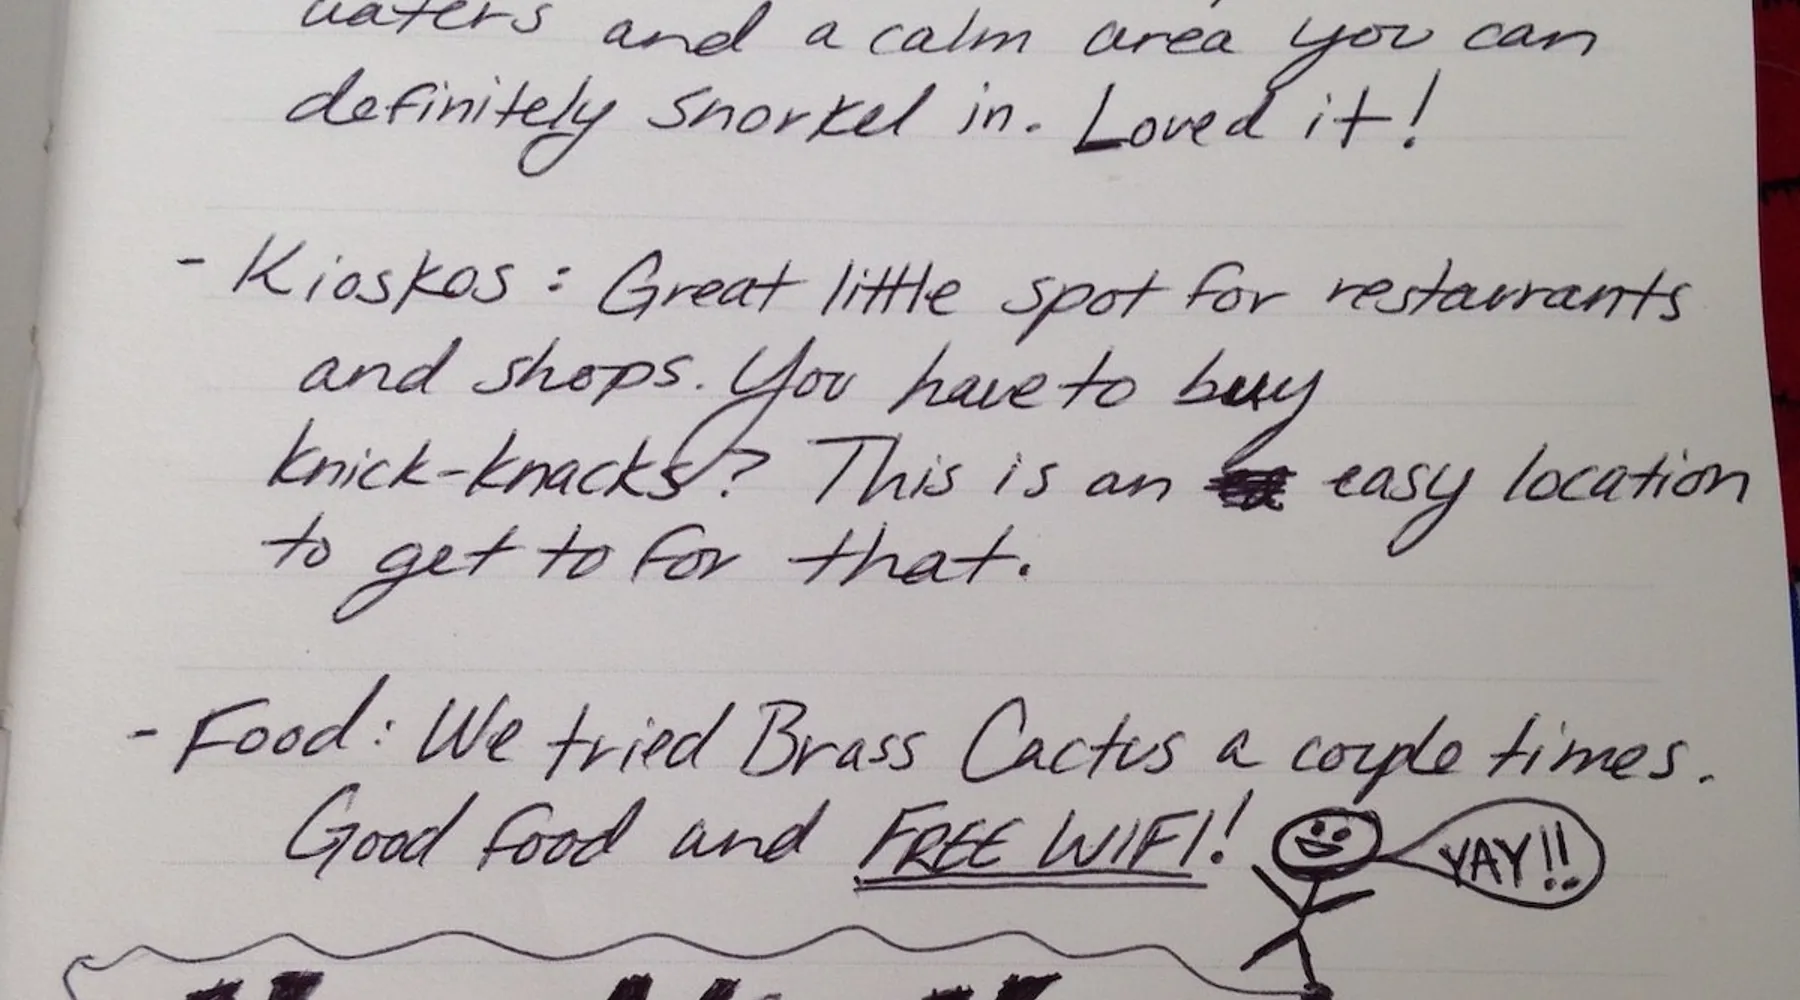 waters and a calm area you can
definitely snorkel in. Loved it!
- Kioskos: Great little spot for restaurants
and shops. You have to buy
knick-knacks? This is an easy location
to get to for that.
- Food: We tried Brass Cactus a couple times.
Good food and FREE WIFI! YAY!!